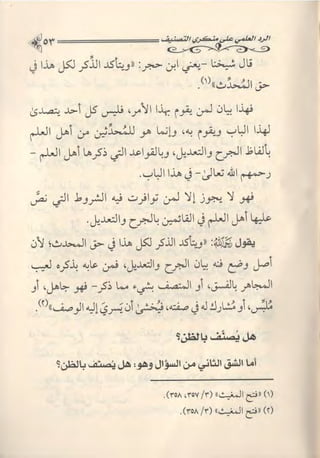 الرد العلمي على منكري التصنيف
٥٣
قال شيخنا -يعني ابن حجر-: «ويتأكد الذكر لكل هذا في
حق المحدث»(١).
فهذا بيان لمن يقوم بهذا الأمر، فليس كل أحد يتصدى
لهذا الباب ويقوم به، وإنما هو للمحدثين من أهل العلم
بألفاظ الجرح والتعديل، وبالقواعد التي ذكرها أهل العلم -
رحمهم الله تعالى- في هذا الباب.
فهو لا يجوز إلا لمن توافرت فيه الشروط التي نص
عليها أهل العلم في القائمين بالجرح والتعديل.
يقول رحمه الله: «ويتأكد الذكر لكل هذا في حق المحدث؛ لأن
أصل ما وضع فيه بيان الجرح والتعديل، فمن عابه بذكره لعيب
المجاهر بالفسق، أو المتصف بشيء مما ذكر- فهو جاهل، أو
ملبس، أو مشارك له في صفته، فيخشى أن يسري إليه الوصف»(٢).
هل يصنف بالظن؟
أما الشق الثاني من السؤال وهو: هل يصنف بالظن؟
(١) «فتح المغيث» (٣/ ٣٥٧، ٣٥٨).
(٢) «فتح المغيث» (٣/ ٣٥٨).